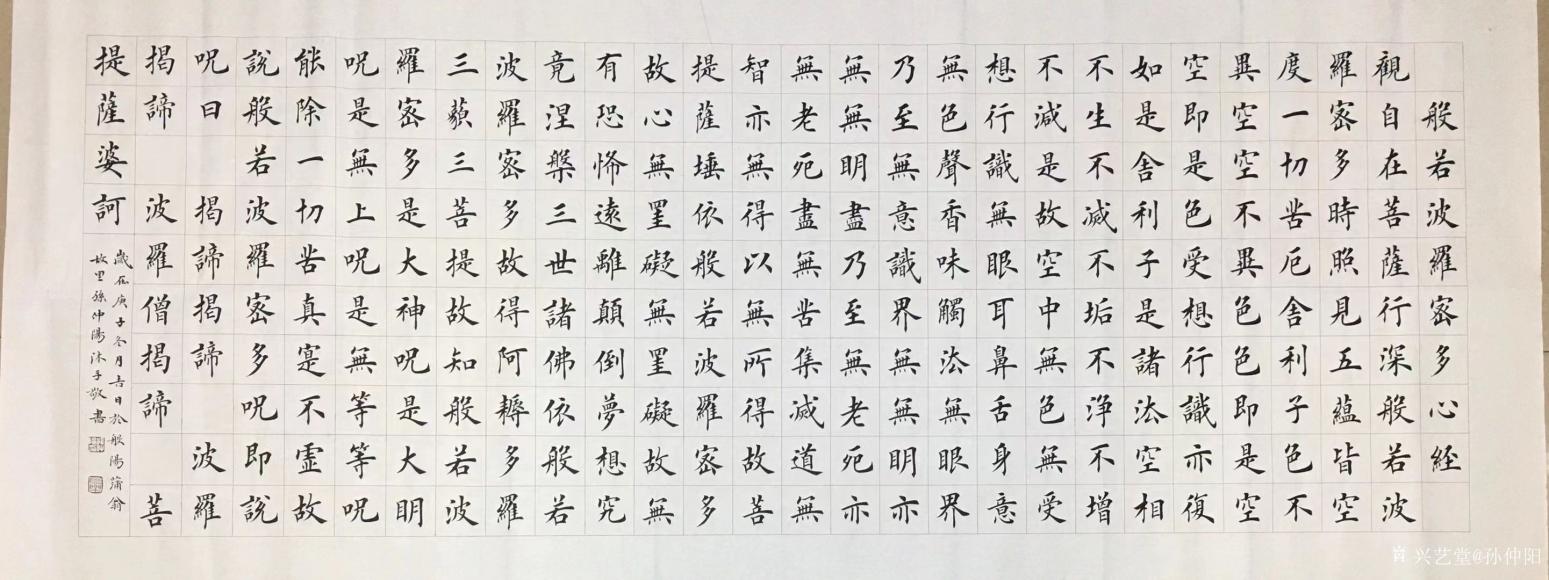 般若波羅密多心經
觀自在菩薩行深般若波
羅密多時照見五蘊皆空
度一切苦厄舍利子色不
異空空不異色色即是空
空即是色受想行識亦復
如是舍利子是諸法空相
不生不滅不垢不淨不增
不減是故空中無色無受
想行識無眼耳鼻舌身意
無色聲香味觸法無眼界
乃至無意識界無無明亦
無無明盡乃至無老死亦
無老死盡無苦集滅道無
智亦無得以無所得故菩
提薩埵依般若波羅密多
故心無罣礙無罣礙故無
有恐怖遠離顛倒夢想究
竟涅槃三世諸佛依般若
波羅密多故得阿耨多羅
三藐三菩提故知般若波
羅密多是大神呪是大明
呪是無上呪是無等等呪
能除一切苦真寔不虛故
說般若波羅密多呪即說
呪曰 揭諦揭諦 波羅
揭諦 波羅僧揭諦 菩
提薩婆訶
歲在庚子冬月吉日於般陽蒲翁
故里孫仲陽沐手敬書
兴艺堂@孙仲阳